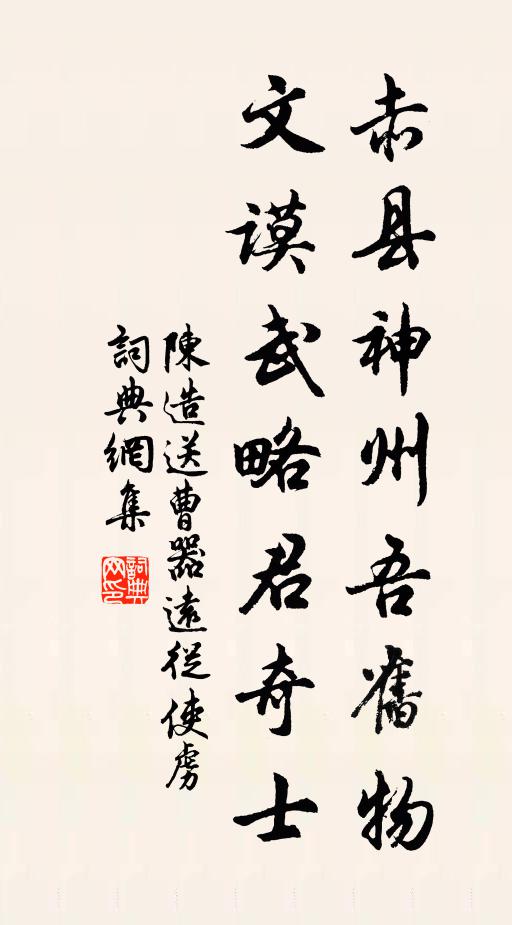 赤县神州吾舊物
文謨武略君奇士
陳造送曹器遠從使虜
詞典網集
詞典網印